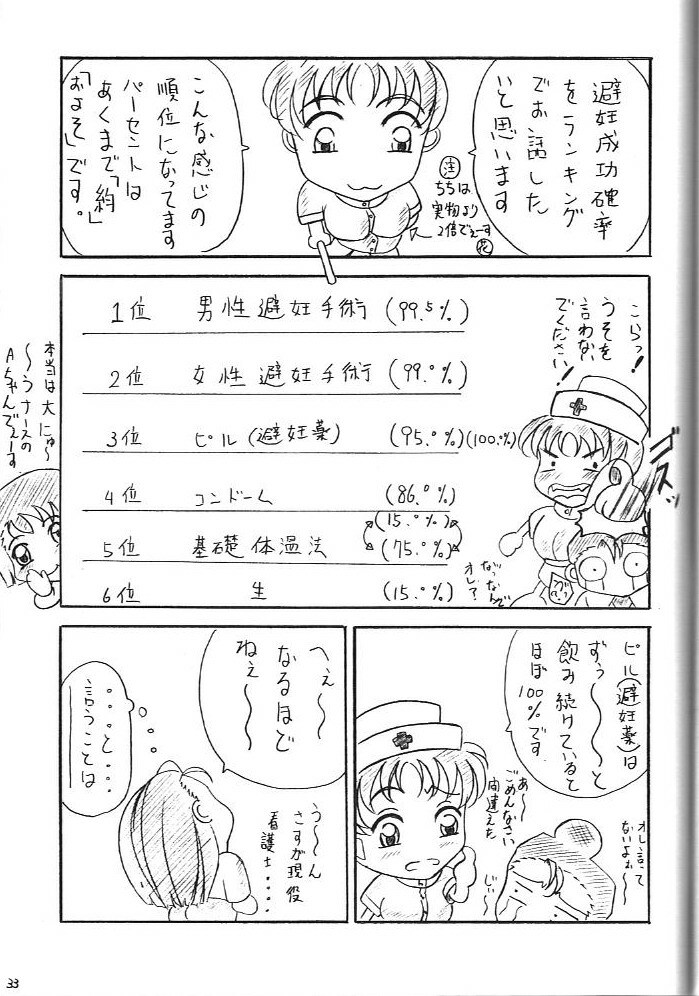 避妊成功確率
をランキング
でお話した
いと思います
注
ちちは
実物より
2倍でぇーす
花
こんな感じの
順位になってます
パーセントは
あくまで「約」
「およそ」です。
こらっ!
うそを
言わない
でください!
1位 男性避妊手術 (99.5%)
2位 女性避妊手術 (99.0%)
3位 ピル(避妊薬) (95.0%)(100%)
4位 コンドーム (86.0%)
(15.0%)
5位 基礎体温法 (75.0%)
6位 生 (15.0%)
本当は大にゅ〜
〜うナースの
Aちゃんでぇーす
なっなんで
オレ?
ピル(避妊薬)は
ずぅ〜〜〜っと
飲み続けていると
ほぼ100%です
あ〜
ごめんなさい
間違えた
じぃ〜
オレ言って
ないよぉ〜
へぇ〜〜
なるほど
ねぇ〜〜
う〜〜ん
さすが現役
看護士・・・・
・・・と・・・
言うことは
33